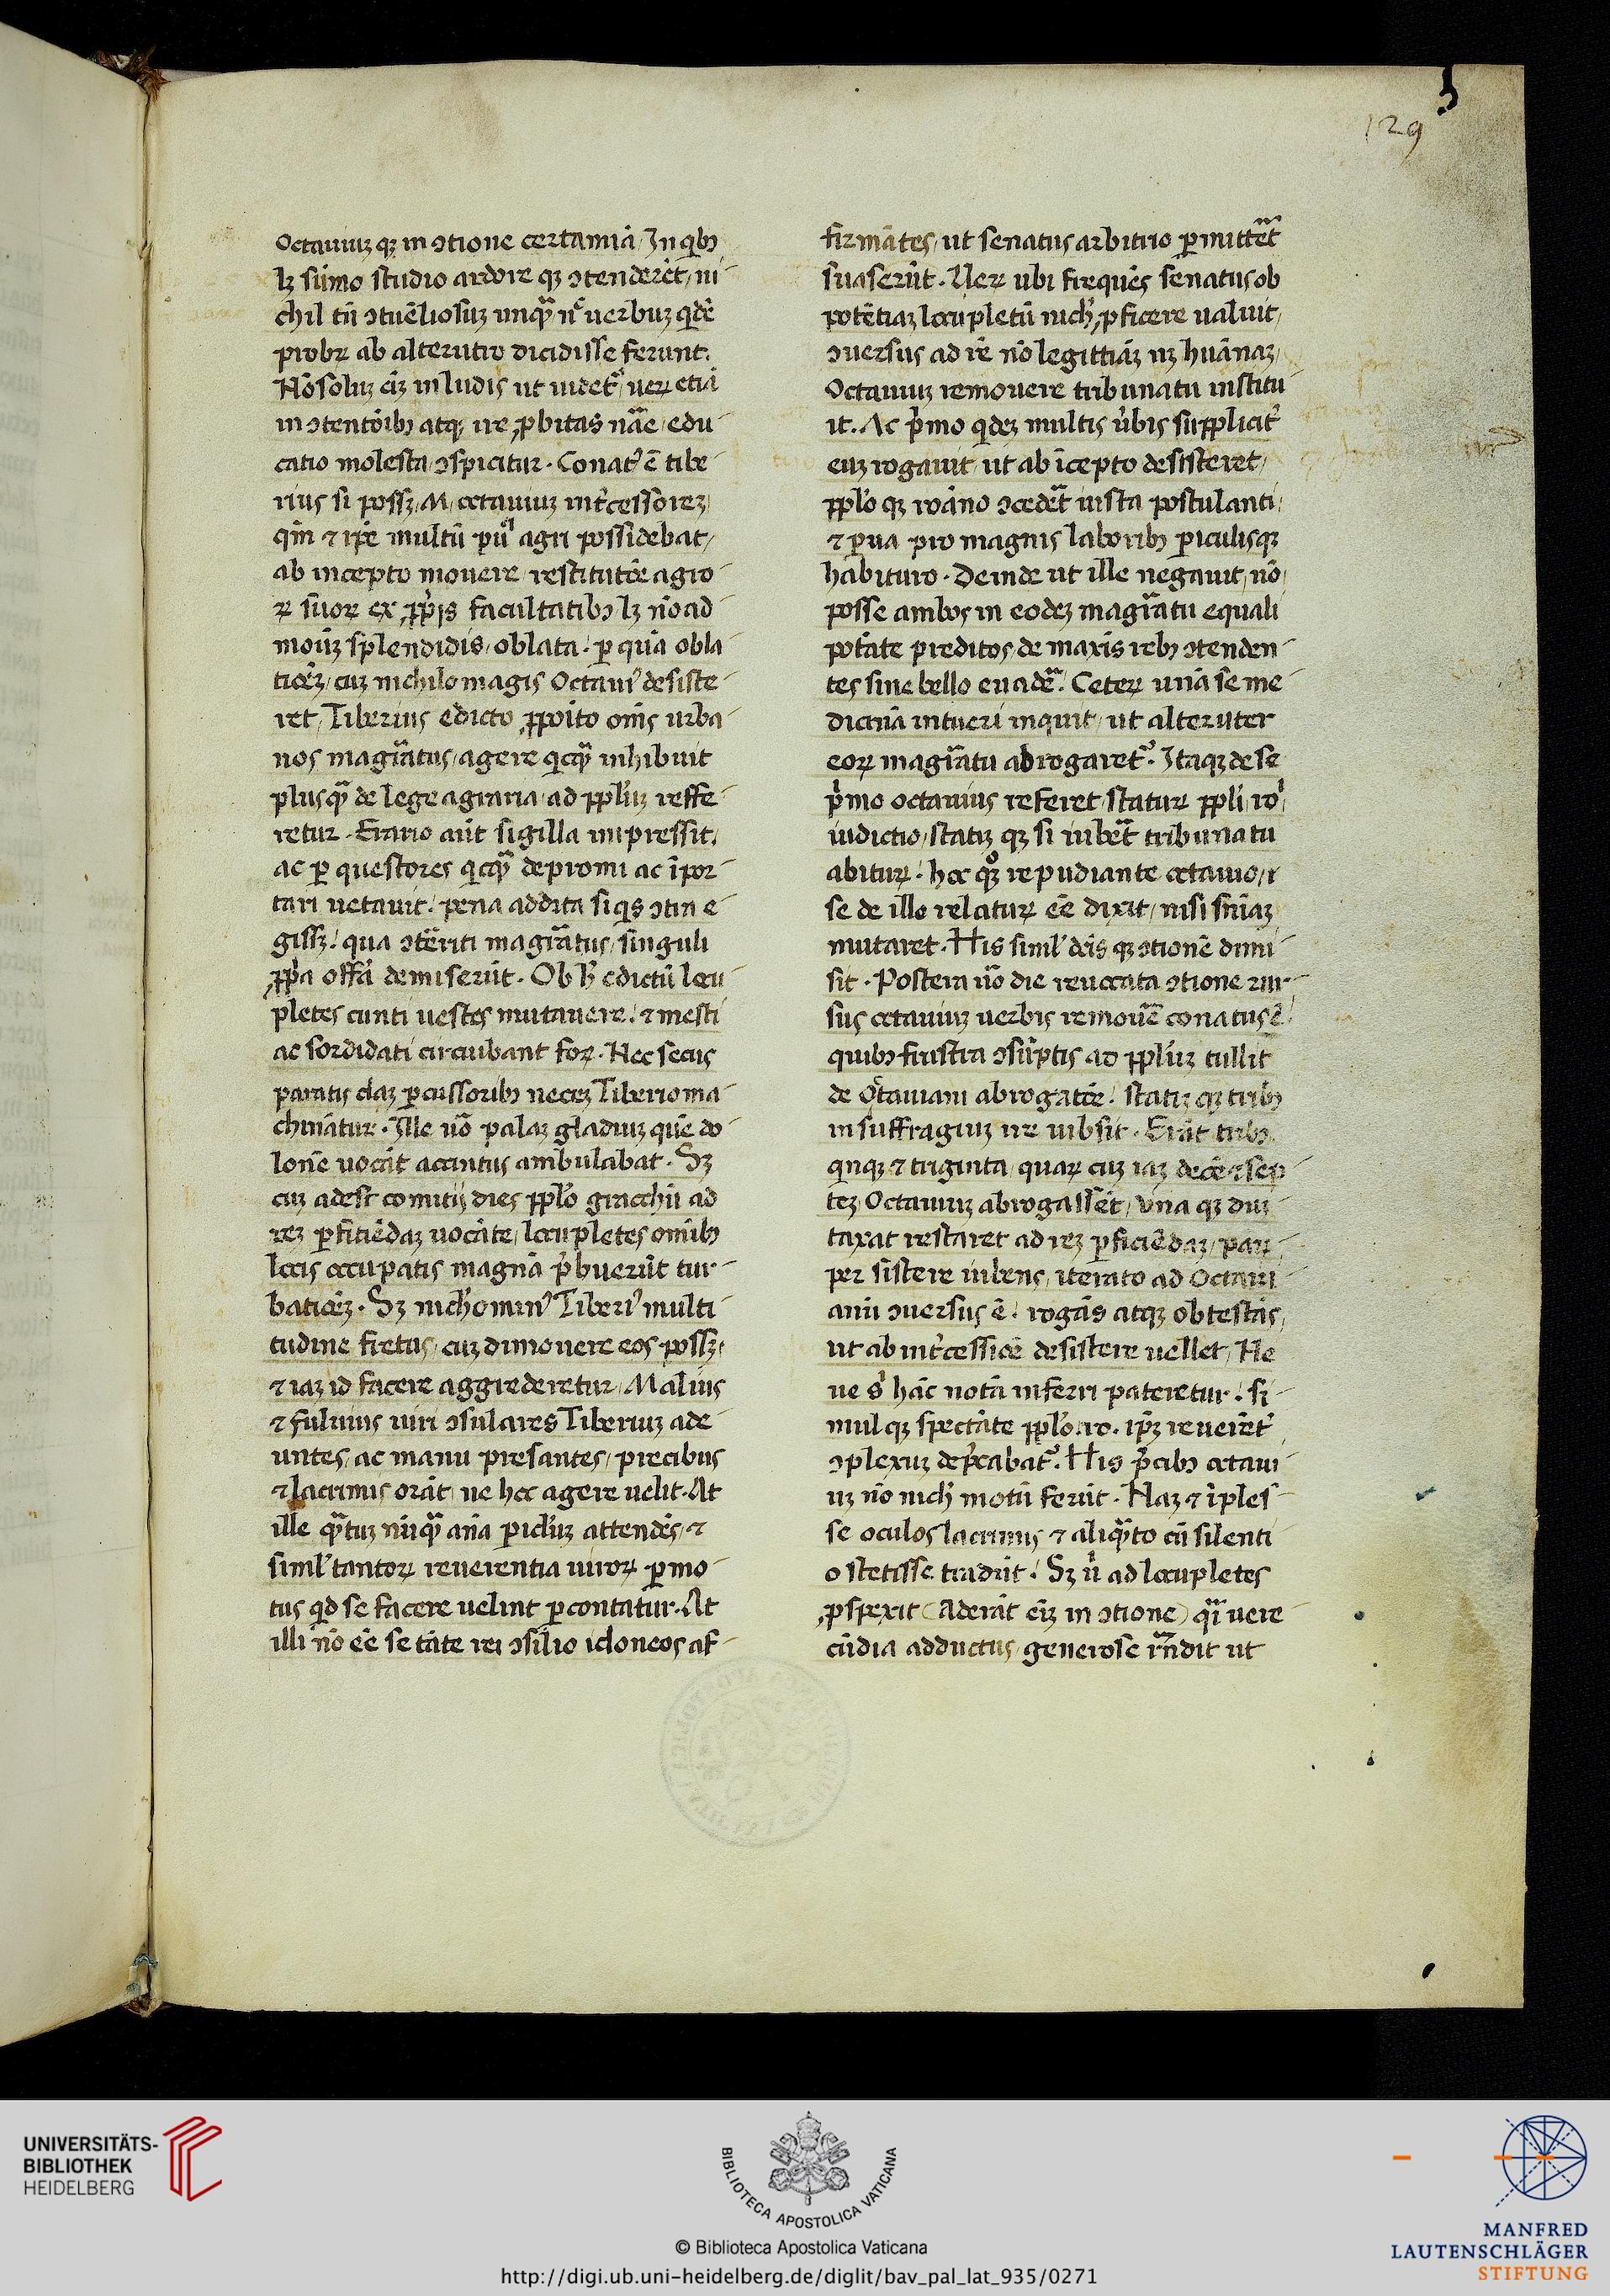 129
Octauiuꝫ qꝫ in ↄtione certaminā / In qibꝫ
lꝫ sūmo studio ardore qꝫ ↄtenderēt / ni-
chil tn̄ ↄtuēliosuꝫ unqᷓ nͨ uerbuꝫ qidē
probꝝ ab alterutro dicidisse ferunt.
Nō soluꝫ em̄ in ludis ut uidet᷑ / ueꝝ etiā
in ↄtentōibꝫ atqꝫ ire ꝓbitas nāe / edu-
catio molesta / ↄspicitur. Conat᷑ ē tibe-
rius si possꝫ / M / octauiuꝫ int̄cessoreꝫ
qm̄ ⁊ ip̄e multū pul agri possidebat /
ab incepto mouere / restitutōe agro-
ꝝ suoꝝ ex ꝓpr̄is facultatibꝫ lꝫ nō ad-
moduꝫ splendidis / oblata. ꝑ quā obla-
tioēꝫ / cuꝫ nichilo magis Octauiꝰ desiste-
ret / Tiberius edicto ꝓpōito om̄s urba-
nos magr̄atus / agere qicqᷓ inhibuit
plusqᷓ de lege agraria / ad pp̄luꝫ reffe-
retur. Erario aūt sigilla impressit /
ac ꝑ questores qicqᷓ depromi ac īpor-
tari uetauit. pena addita si qis ↄtra e-
gissꝫ. qua ↄt̄riti magr̄atus / singuli
ꝓpr̄a offā demiserūt. Ob h edictū locu-
pletes cunti uestes mutauere. ⁊ mesti
ac sordidati circuibant foꝝ. Nec secus
paratis claꝫ ꝑcussoribꝫ neceꝫ Tiberio ma-
chināt̄ur. Ille uō palaꝫ gladiuꝫ quē do-
lonē uocāt accintus ambulabat. Sꝫ
cuꝫ adest comitij dies pp̄lo gracchū ad
reꝫ ꝑfitiēdaꝫ uocāte / locupletes omībꝫ
locis occupatis magnā p̄buerūt tur-
batioēꝫ. Sꝫ nich̄ominꝰ Tiberiꝰ multi-
tudine fretus / cuꝫ dimouere eos possꝫ /
⁊ iaꝫ id facere aggrederetur / Malius
⁊ fuluius uiri ↄsulares Tiberiuꝫ ade-
untes / ac manu presantes / precibus
⁊ lacrimis orāt / ne hoc agere uelit. At
ille qᷓtuꝫ nūqᷓ ān̄a picl̄uꝫ attendēs / ⁊
siml̄ tantoꝝ reuerentia uiroꝝ ꝑmo-
tus qid se facere uelint ꝑcontatur. At
illi nō eē se tāte rei ↄsilio idoneos af-
firmātes / ut senatus arbitrio ꝑmitteᷓt
suaserūt. Ueꝝ ubi frequēs senatus ob
potētiaꝫ locupletū nich̄ ꝓficere ualuit /
ↄuersus ad rē nō legittiāꝫ nꝫ huānaꝫ /
Octauiuꝫ remouere tribunatu institu-
it. Ac p̄mo qideꝫ multis ūbis supplicit᷑
euꝫ rogauit / ut ab īcepto desisteret /
pp̄lo qꝫ roāno ↄcedeᷓt iusta postulanti /
⁊ ꝑua pro magnis laboribꝫ ꝑiculisqꝫ
habituro. Deinde ut ille negauit / nō
posse ambos in eodeꝫ magr̄atu equali
potāte preditos / de maxīs rebꝫ ↄtenden-
tes sine bello euadeᷓ. Ceteꝝ unā se me-
dicinā intueri inquit / ut alteruter
eoꝝ magr̄atu abrogaret᷑. Itaqꝫ de se
p̄mo octauius referet / statuꝝ pp̄li / ro
iudictio / statiꝫ qꝫ si iubeᷓt tribunatu
abituꝝ. hoc qͦꝫ repudiante octauio / r
se de illo relatuꝝ eē dixit / nisi sn̄iaꝫ
mutaret. His siml̄ dc̄is qꝫ ↄtionē dimi-
sit. Postera uō die reuocata ↄtione rur-
sus octauiuꝫ uerbis remoueᷓ conatus ē
quibꝫ frustra ↄsūptis ad pp̄luꝫ tullit
de Octauiani abrogatōe. statiꝫ qꝫ tribꝫ
in suffragiuꝫ ire iubsit. Erāt tribꝫ
qinqꝫ ⁊ triginta / quaꝝ cuꝫ iaꝫ decē ⁊ sep-
teꝫ Octauiuꝫ abrogassēt / una qꝫ duꝫ
taxat restaret ad reꝫ ꝑficiēdaꝫ / paꝝ
per sistere iubens / iterato ad Octaui-
anū ↄuersus ē. rogās atqꝫ obtestās /
ut ab int̄cessiōe desistere uellet / Ne
ue s hāc notā inferri pateretur. si-
mul qꝫ spectāte pp̄lo . ro . ip̄ꝫ reuerēt᷑
ↄplexuꝫ dep̄cabat᷑. His p̄cibꝫ octaui-
uꝫ nō nich̄ motū ferūt. Naꝫ ⁊ īples-
se oculos lacrimis ⁊ aliqᷓto cū silenti-
o stetisse tradūt. Sꝫ ū ad locupletes
ꝓspexit (Aderāt em̄ in ↄtione) qᷓi uere-
cūdia adductus / generose rn̄dit ut
UNIVERSITÄTS-
BIBLIOTHEK
HEIDELBERG
BIBLIOTECA APOSTOLICA VATICANA
© Biblioteca Apostolica Vaticana
http://digi.ub.uni-heidelberg.de/diglit/bav_pal_lat_935/0271
MANFRED
LAUTENSCHLÄGER
STIFTUNG